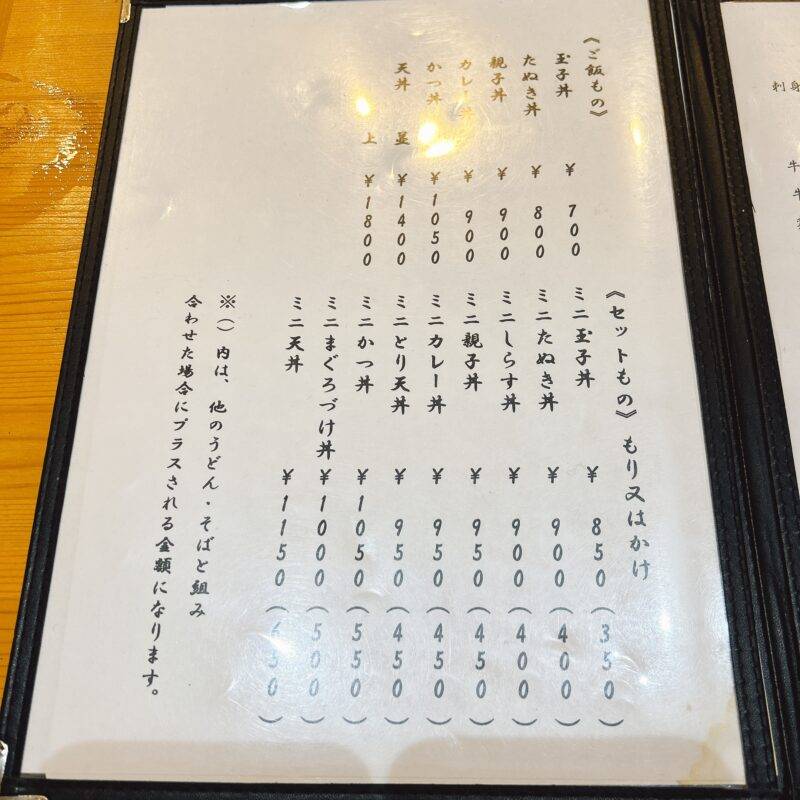 《ご飯もの》
玉子丼 ¥700
たぬき丼 ¥800
親子丼 ¥900
カレー丼 ¥900
かつ丼 ¥1050
天丼 並 ¥1400
上 ¥1800
《セットもの》もり又はかけ
ミニ玉子丼 ¥850(350)
ミニたぬき丼 ¥900(400)
ミニしらす丼 ¥900(400)
ミニ親子丼 ¥950(450)
ミニカレー丼 ¥950(450)
ミニとり天丼 ¥950(450)
ミニかつ丼 ¥1050(550)
ミニまぐろづけ丼 ¥1000(500)
ミニ天丼 ¥1150(650)
※()内は、他のうどん・そばと組み
合わせた場合にプラスされる金額になります。
刺身